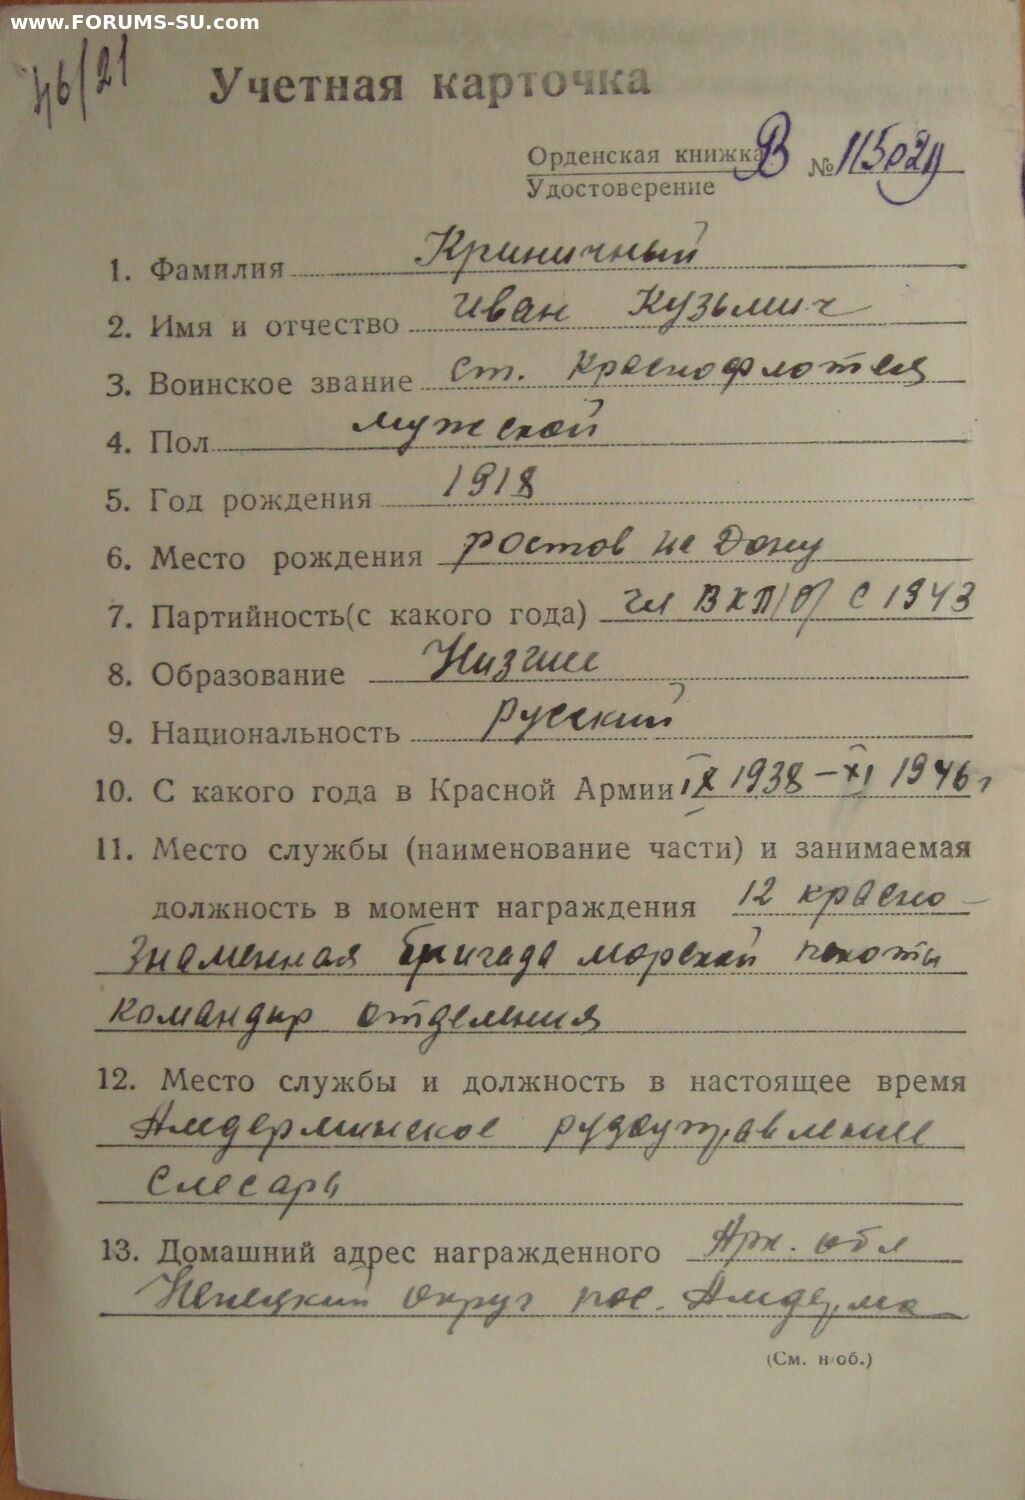 www.FORUMS-SU.com
46/21
Учетная карточка
Орденская книжка В № 115029
Удостоверение
1. Фамилия Криничный
2. Имя и отчество Иван Кузьмич
3. Воинское звание ст. Краснофлотец
4. Пол мужской
5. Год рождения 1918
6. Место рождения Ростов на Дону
7. Партийность(с какого года) чл ВКП/б/ с 1943
8. Образование Низшее
9. Национальность русский
10. С какого года в Красной Армии IX 1938 – XI 1946 г
11. Место службы (наименование части) и занимаемая
должность в момент награждения 12 красно-
знаменная бригада морской пехоты
командир отделения
12. Место службы и должность в настоящее время
Амдерминское рудоуправление
Слесарь
13. Домашний адрес награжденного Арх. обл
Ненецкий округ пос. Амдерма
(См. н об.)